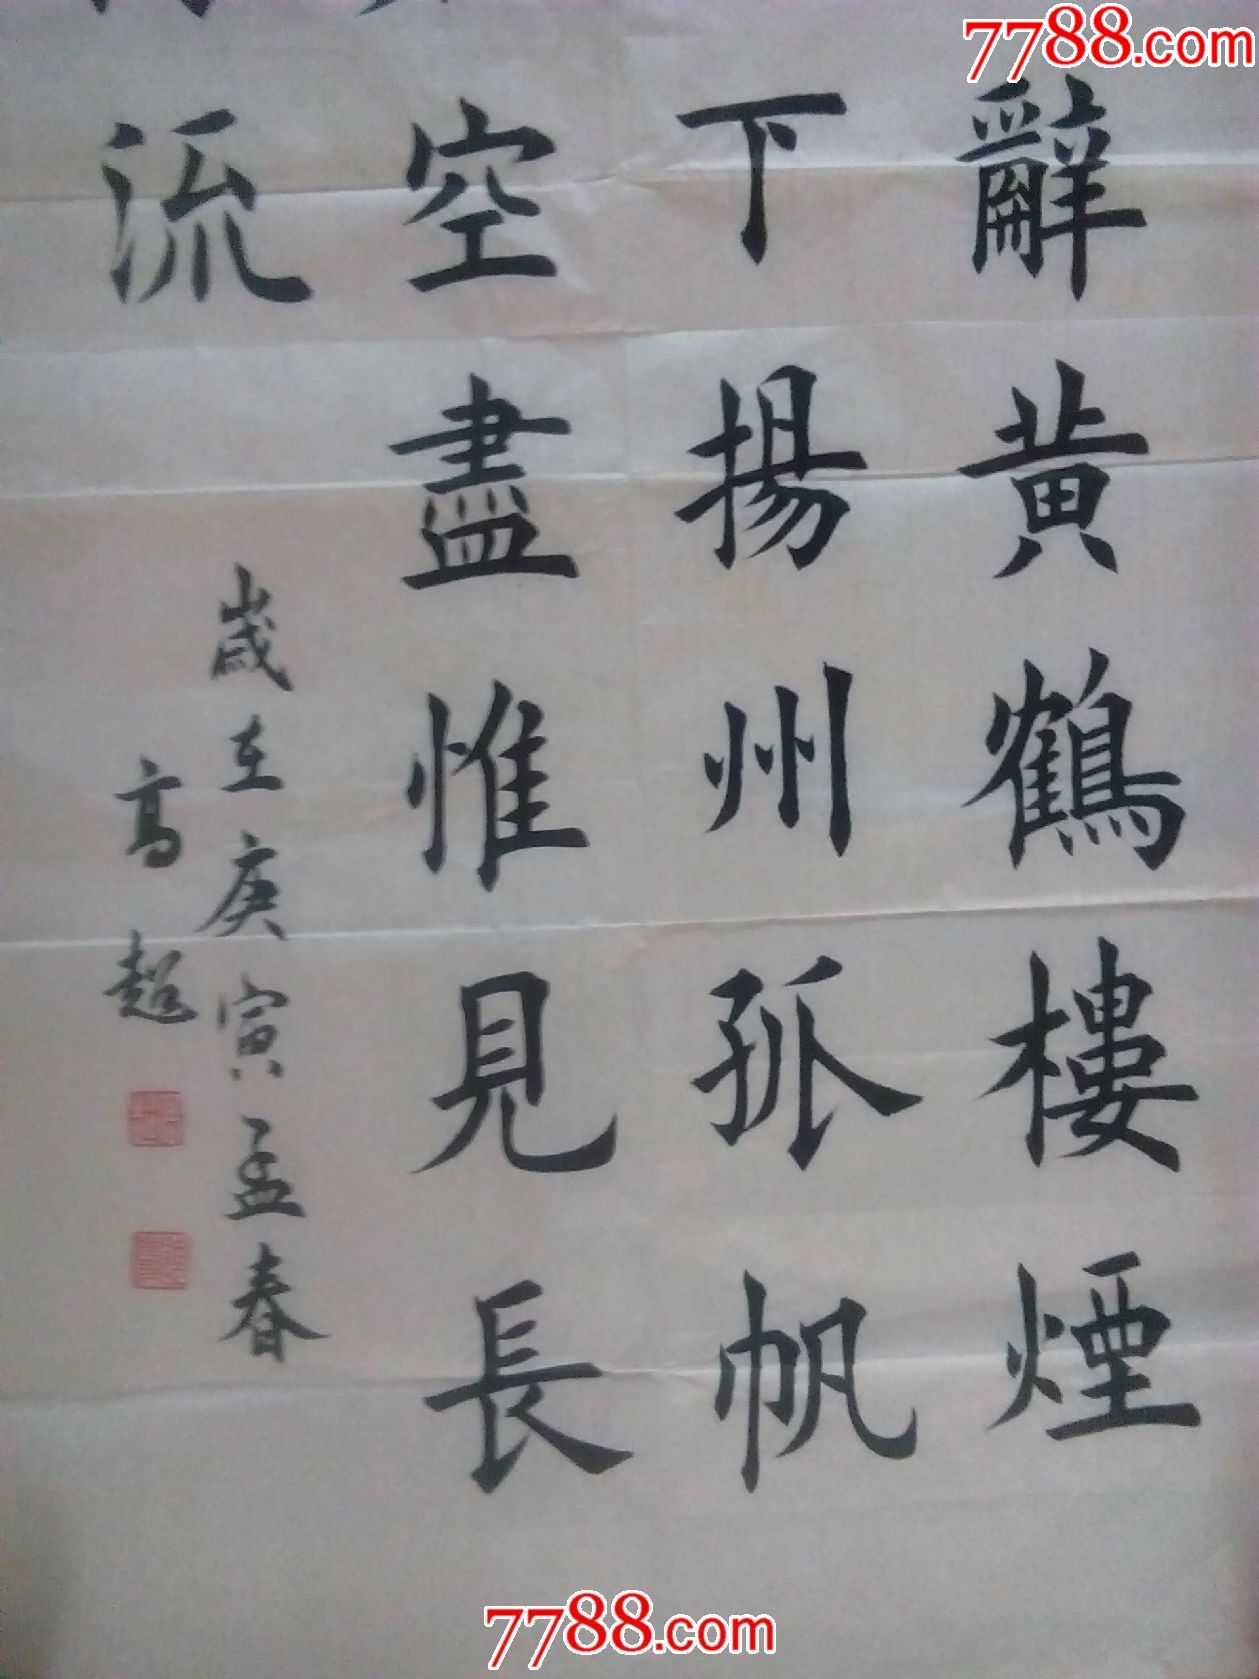 7788.com
辭黄鶴樓煙
下揚州孤帆
空盡惟見長
流
歲在庚寅孟春
高超
7788.com